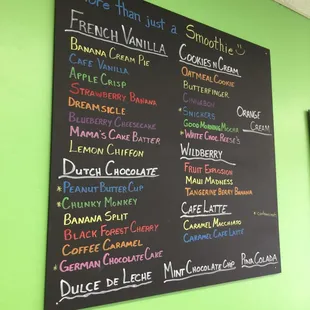 More than just a Smoothie
French Vanilla
Banana Cream Pie
Cafe Vanilla
Apple Crisp
Strawberry Banana
Dreamsicle
Blueberry Cheesecake
Mama's Cake Batter
Lemon Chiffon
Dutch Chocolate
*Peanut Butter Cup
*Chunky Monkey
Banana Split
Black Forest Cherry
Coffee Caramel
*German Chocolate Cake
Dulce de Leche
Cookies n Cream
Oatmeal Cookie
Butterfinger
Cinnabon
*Snickers
Good Morning Mocha
*White Choc. Reese's
Wildberry
Fruit Explosion
Maui Madness
Tangerine Berry Banana
Cafe Latte
Caramel Macchiato
Caramel Cafe Latte
Mint Chocolate Chip
Orange
Cream
Pina Colada